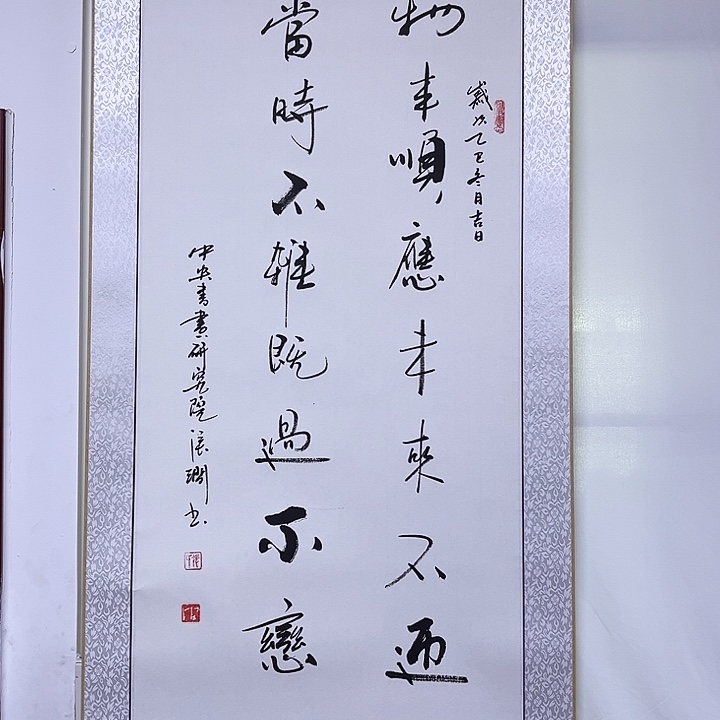 歲次乙巳冬月吉日
物来順應未來不迎
當時不雜既過不戀
中央書畫研究院張書